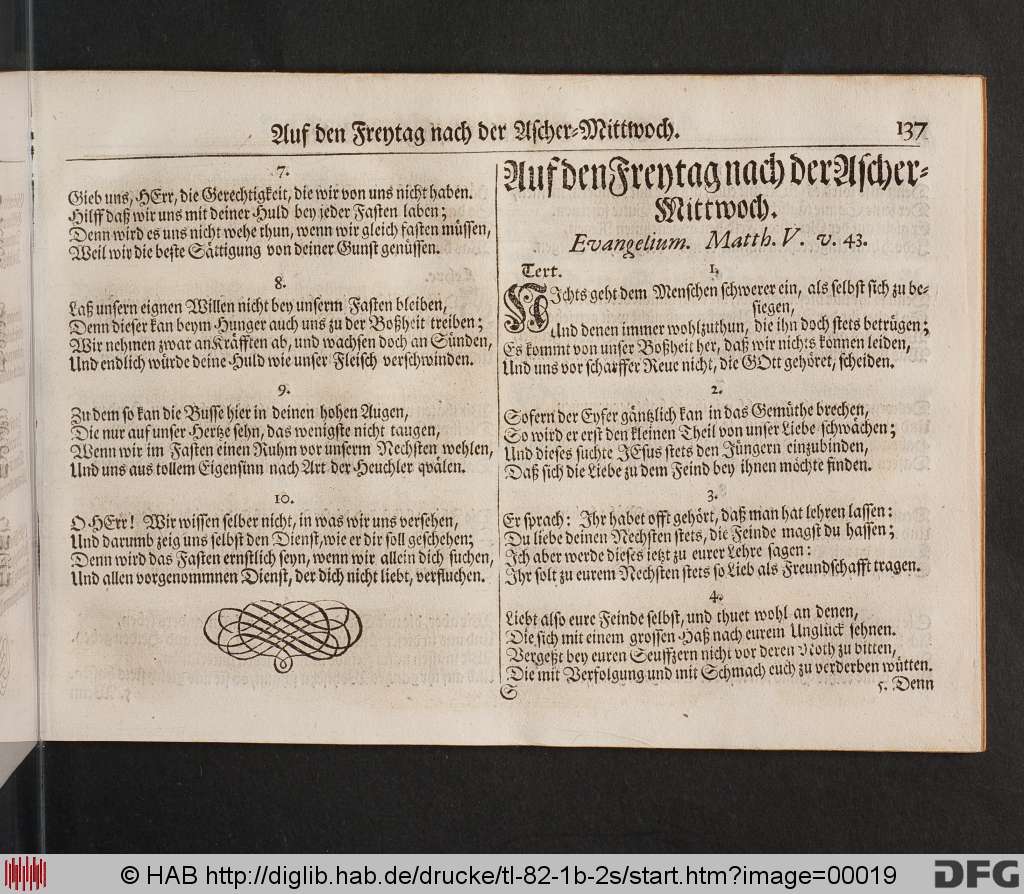 Auf den Freytag nach der Ascher-Mittwoch. 137
7.
Gieb uns, HErr, die Gerechtigkeit, die wir von uns nicht haben.
Hilff daß wir uns mit deiner Huld bey jeder Fasten laben;
Denn wird es uns nicht wehe thun, wenn wir gleich fasten müssen,
Weil wir die beste Sättigung von deiner Gunst genüssen.
8.
Laß unsern eignen Willen nicht bey unserm Fasten bleiben,
Denn dieser kan beym Hunger auch uns zu der Boßheit treiben;
Wir nehmen zwar an Kräfften ab, und wachsen doch an Sünden,
Und endlich würde deine Huld wie unser Fleisch verschwinden.
9.
Zu dem so kan die Busse hier in deinen hohen Augen,
Die nur auf unser Hertze sehn, das wenigste nicht taugen,
Wenn wir im Fasten einen Ruhm vor unserm Nechsten wehlen,
Und uns aus tollem Eigensinn nach Art der Heuchler qvälen.
10.
O HErr! Wir wissen selber nicht, in was wir uns versehen,
Und darumb zeig uns selbst den Dienst, wie er dir soll geschehen;
Denn wird das Fasten ernstlich seyn, wenn wir allein dich suchen,
Und allen vorgenommnen Dienst, der dich nicht liebt, verfluchen.
Auf den Freytag nach der Ascher-
Mittwoch.
Evangelium. Matth. V. v. 43.
Text. 1.
NIchts geht dem Menschen schwerer ein, als selbst sich zu be-
siegen,
Und denen immer wohlzuthun, die ihn doch stets betrügen;
Es kommt von unser Boßheit her, daß wir nichts können leiden,
Und uns vor scharffer Reue nicht, die GOtt gehöret, scheiden.
2.
Sofern der Eyfer gäntzlich kan in das Gemüthe brechen,
So wird er erst den kleinen Theil von unser Liebe schwächen;
Und dieses suchte JEsus stets den Jüngern einzubinden,
Daß sich die Liebe zu dem Feind bey ihnen möchte finden.
3.
Er sprach: Ihr habet offt gehört, daß man hat lehren lassen:
Du liebe deinen Nechsten stets, die Feinde magst du hassen;
Ich aber werde dieses ietzt zu eurer Lehre sagen:
Ihr solt zu eurem Nechsten stets so Lieb als Freundschafft tragen.
4.
Liebt also eure Feinde selbst, und thuet wohl an denen,
Die sich mit einem grossen Haß nach eurem Unglück sehnen.
Vergeßt bey euren Seuffzern nicht vor deren Noth zu bitten,
Die mit Verfolgung und mit Schmach euch zu verderben wütten.
S 5. Denn
© HAB http://diglib.hab.de/drucke/tl-82-1b-2s/start.htm?image=00019
DFG